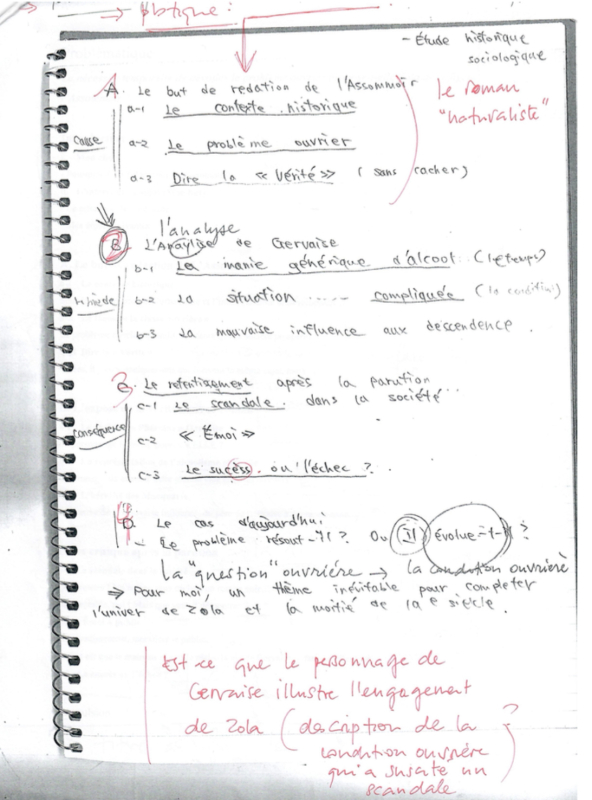 - Étude historique
sociologique
A. Le but de rédation de l'Assommoir
le roman
"naturaliste"
a-1 Le contexte historique
cause
a-2 Le problème ouvrier
a-3 Dire la « Vérité » (sans cacher)
l'analyse
B. L'Anaylise de Gervaise
b-1 La manie générique d'alcool
b-2 La situation ...... compliquée
b-3 La mauvaise influence aux descendence.
C. Le retentizement après la parution...
c-1 Le scandale. dans la société...
conséquence
c-2 « Émoi »
c-3 Le sucèss. ou l'échec?..
D. Le cas d'aujourd'hui
- Le problème résout-il? Ou Il évolue-t-il?
la "question" ouvriére → la condition ouvrière
⇒ Pour moi, un thème inévitable pour completer
l'univer de Zola et la moitié de siècle.
Est ce que le personnage de
Gervaise illustre l'engagement
de Zola (description de la
condition ouvrière
qui a suscité un
scandale ?